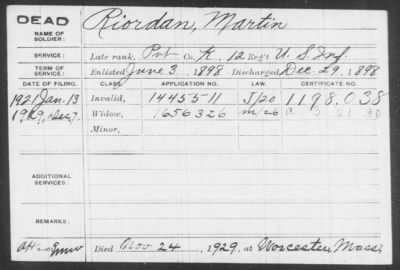 DEAD
NAME OF SOLDIER: Riordan, Martin
SERVICE: Late rank, Pvt Co. K, 12 Reg't U. S. Inf
TERM OF SERVICE: Enlisted June 3, 1898, Discharged Dec 29, 1898
DATE OF FILING. CLASS. APPLICATION NO. LAW. CERTIFICATE NO.
1921 Jan. 13 Invalid, 1445511 J/20 1198.038
1929, Dec 7. Widow, 1656326 m/26
Minor,
ADDITIONAL SERVICES:
REMARKS:
Died Nov 24, 1929, at Worcester, Mass.